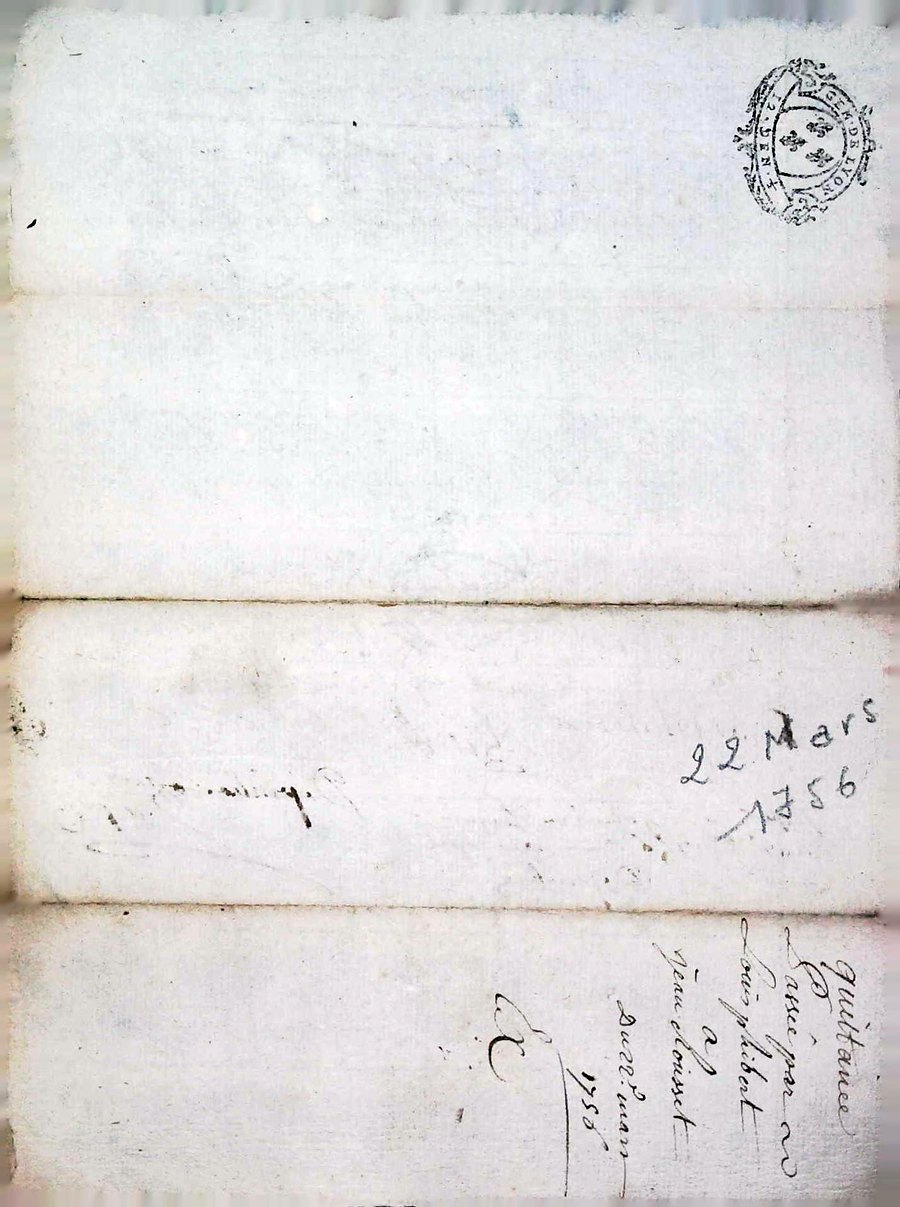 GEN·DE LYON
12·DEN·T·
22 Mars
1756
quittance
Passée par
Louis phibert
a
jean Mousset
Du 22e. mars
1756